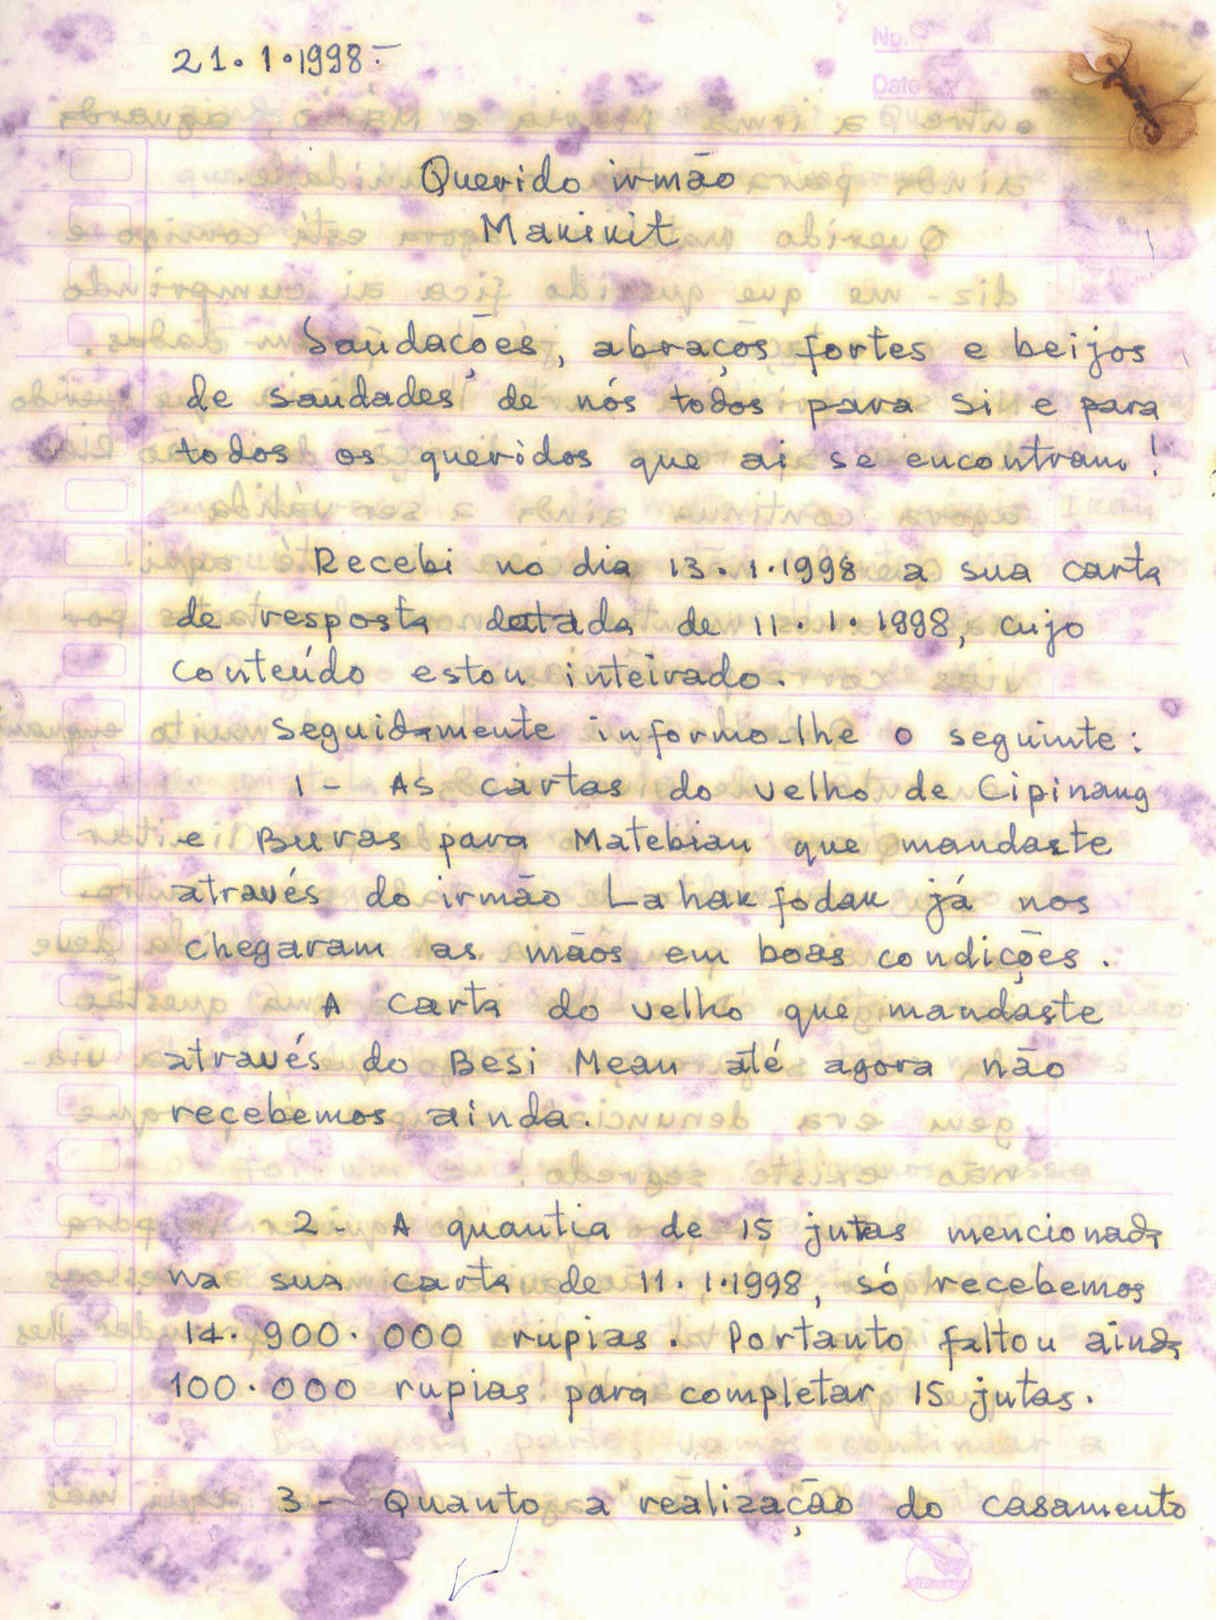 No.
Date
21.1.1998.-
Querido irmão
Makikit
Saudações, abraços fortes e beijos
de saudades de nós todos para si e para
todos os queridos que ai se encontram!
Recebi no dia 13.1.1998 a sua carta
de resposta datada de 11.1.1998, cujo
conteúdo estou inteirado.
Seguidamente informo-lhe o seguinte:
1 - As cartas do velho de Cipinang
e Buras para Matebian que mandaste
através do irmão Lahakfodak já nos
chegaram as mãos em boas condições.
A carta do velho que mandaste
através do Besi Mean até agora não
recebemos ainda.
2 - A quantia de 15 jutas mencionada
na sua carta de 11.1.1998, só recebemos
14.900.000 rupias. Portanto faltou ainda
100.000 rupias para completar 15 jutas.
3 - Quanto a realização do casamento